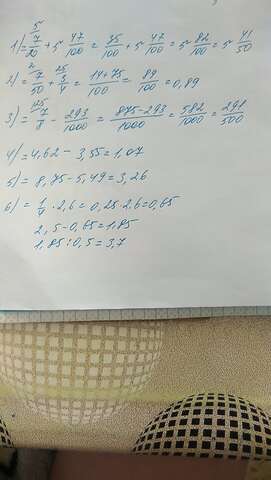 1) = 7/20 + 5 47/100 = 35/100 + 5 47/100 = 5 82/100 = 5 41/50
2) = 7/50 + 3/4 = 14+75/100 = 89/100 = 0,89
3) = 7/8 - 293/1000 = 875-293/1000 = 582/1000 = 291/500
4) = 4,62 - 3,55 = 1,07
5) = 8,75 - 5,49 = 3,26
6) = 1/4 · 2,6 = 0,25 · 2,6 = 0,65
2,5 - 0,65 = 1,85
1,85 : 0,5 = 3,7